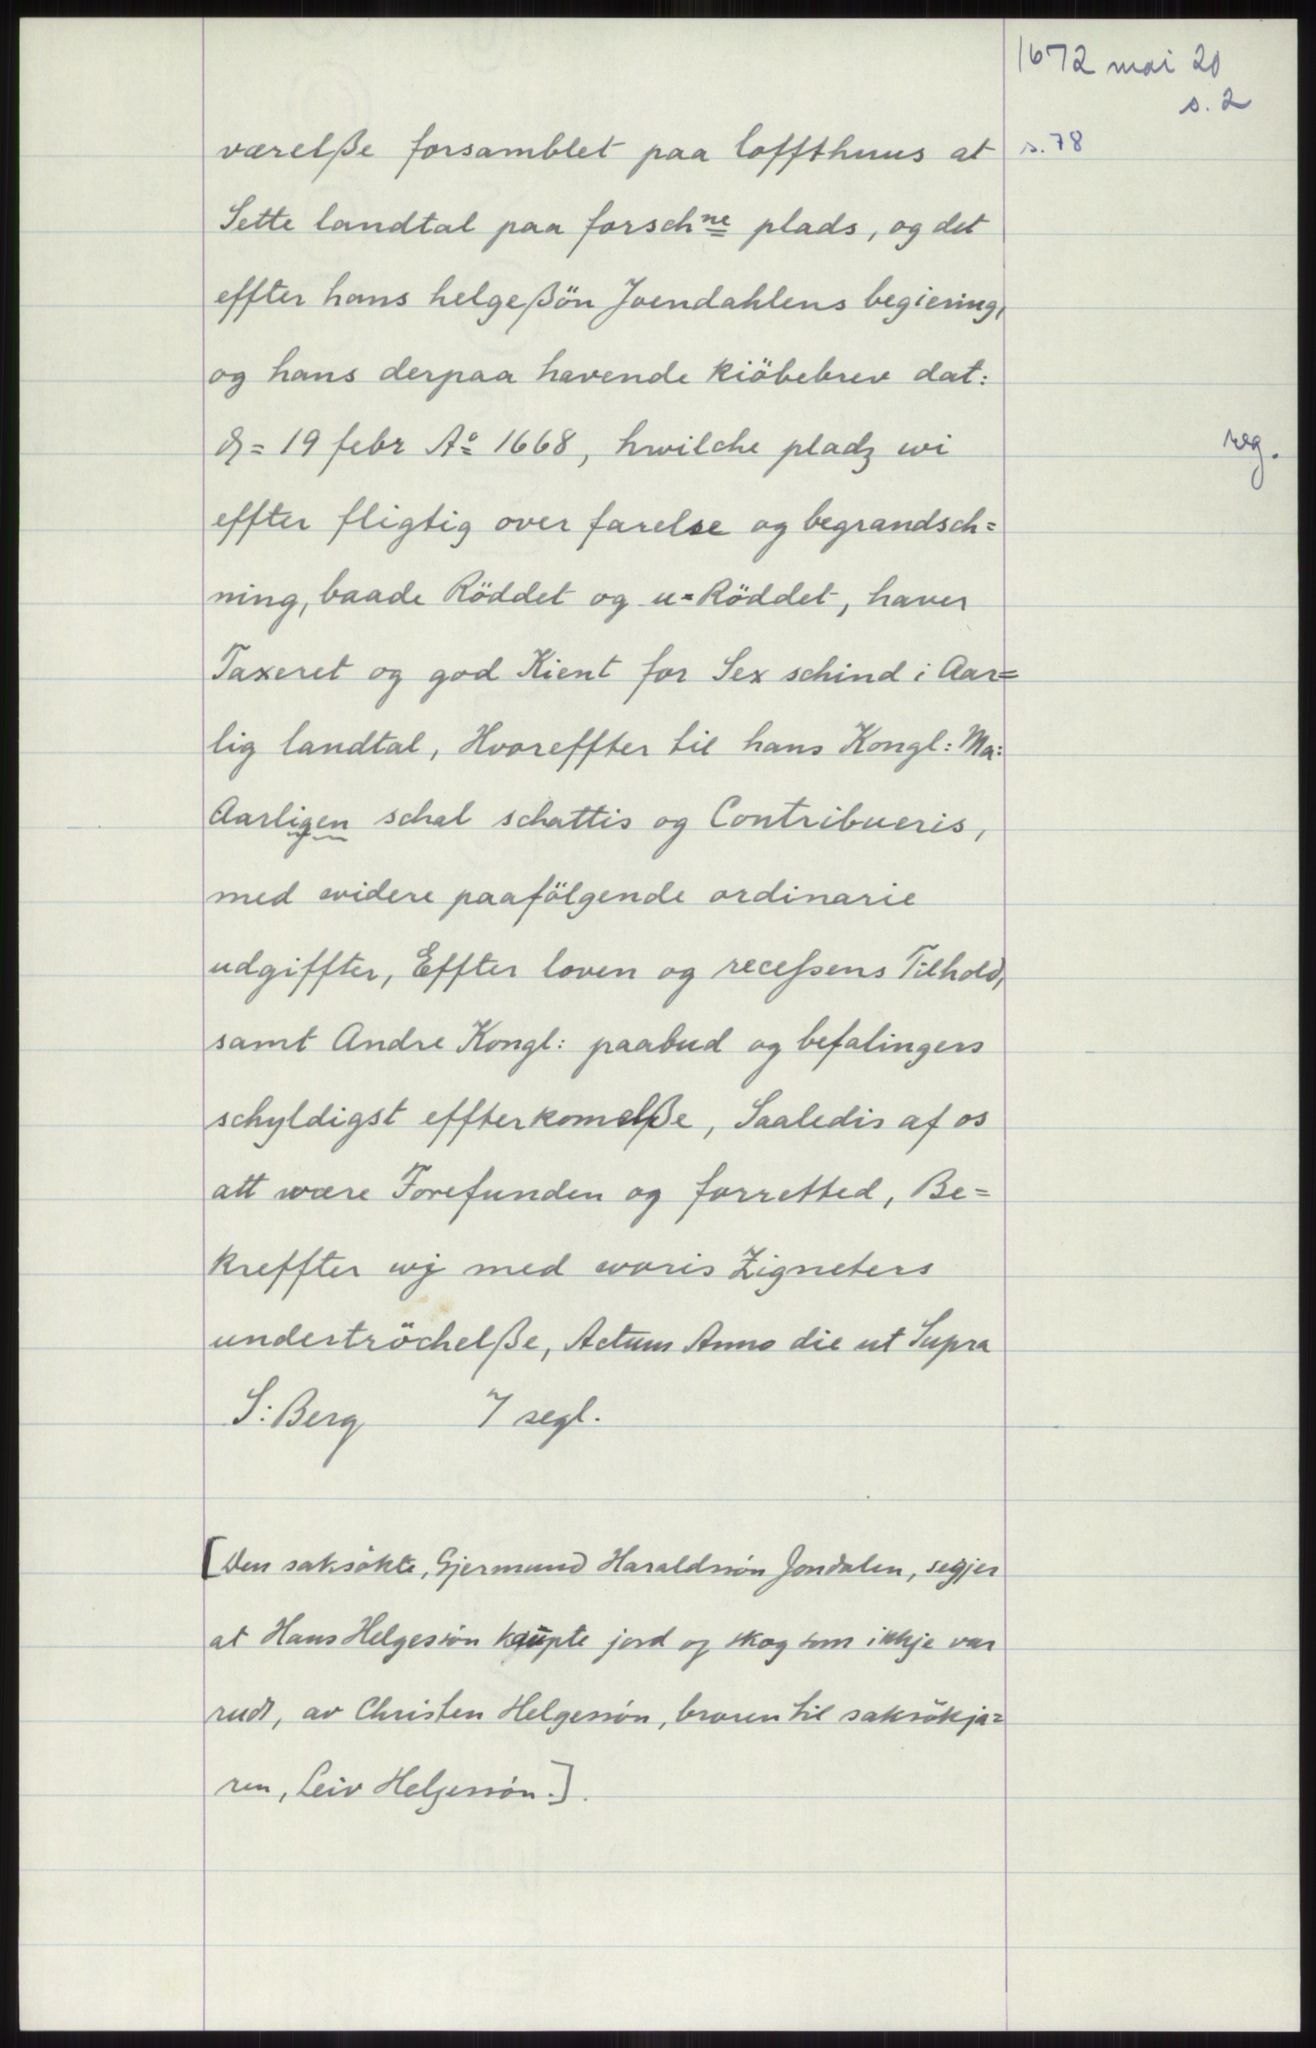 1672 mai 20
s. 2
s. 78
værelße forsamblet paa loffthuus at
Sette landtal paa forschne plads, og det
effter hans helgeßön Joendahlens begiering,
og hans derpaa havende kiöbebrev dat:
19 febr Ao 1668, hwilche pladz wi
reg.
effter fligtig over farelse og begrandsch=
ning, baade Röddet og u=Röddet, haver
Taxeret og god Kient for Sex schind i Aar=
lig landtal, Hvoreffter til hans Kongl: Ma:
Aarligen schal schattis og Contribueris,
med widere paafölgende ordinarie
udgiffter, Effter loven og recessens Tilhold,
samt Andre Kongl: paabud og befalingers
schyldigst effterkomelße, Saaledis af os
att være Forefunden og forretted, Be=
kreffter wj med woris Zigneters
undertröchelße, Actum Anno die ut Supra
S: Berg 7 segl.
[Den saksökte, Gjermund Haraldssön Jondalen, segjer
at Hans Helgessön kaupte jord og skog som ikkje var
rudt, av Christen Helgessön, broren til saksökja=
ren, Leiv Helgessön.].